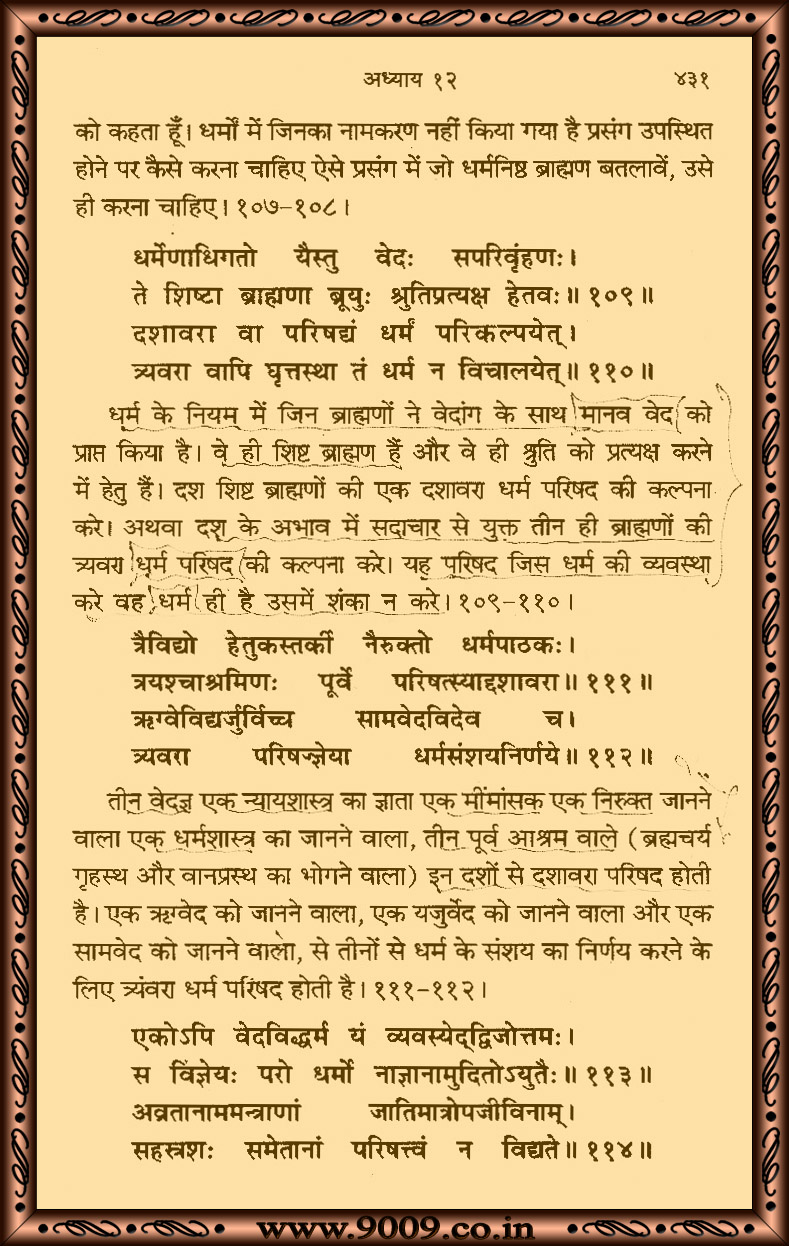 अध्याय १२ ४३१
को कहता हूँ। धर्मों में जिनका नामकरण नहीं किया गया है प्रसंग उपस्थित
होने पर कैसे करना चाहिए ऐसे प्रसंग में जो धर्मनिष्ठ ब्राह्मण बतलावें, उसे
ही करना चाहिए। १०७–१०८।
धर्मेणाधिगतो यैस्तु वेदः सपरिवृंहणः।
ते शिष्टा ब्राह्मणा ब्रूयुः श्रुतिप्रत्यक्ष हेतवः॥ १०९॥
दशावरा वा परिषद्यं धर्मं परिकल्पयेत्।
त्र्यवरा वापि घृत्तस्था तं धर्म न विचालयेत्॥ ११०॥
धर्म के नियम में जिन ब्राह्मणों ने वेदांग के साथ मानव वेद को
प्राप्त किया है। वे ही शिष्ट ब्राह्मण हैं और वे ही श्रुति को प्रत्यक्ष करने
में हेतु हैं। दश शिष्ट ब्राह्मणों की एक दशावरा धर्म परिषद की कल्पना
करे। अथवा दश के अभाव में सदाचार से युक्त तीन ही ब्राह्मणों की
त्र्यवरा धर्म परिषद की कल्पना करे। यह परिषद जिस धर्म की व्यवस्था
करे वह धर्म ही है उसमें शंका न करे। १०९–११०।
त्रैविद्यो हेतुकस्तर्की नैरुक्तो धर्मपाठकः।
त्रयश्चाश्रमिणः पूर्वे परिषत्स्याद्दशावरा॥ १११॥
ऋग्वेविद्यर्जुर्विच्च सामवेदविदेव च।
त्र्यवरा परिषज्ज्ञेया धर्मसंशयनिर्णये॥ ११२॥
तीन वेदज्ञ एक न्यायशास्त्र का ज्ञाता एक मीमांसक एक निरुक्त जानने
वाला एक धर्मशास्त्र का जानने वाला, तीन पूर्व आश्रम वाले (ब्रह्मचर्य
गृहस्थ और वानप्रस्थ का भोगने वाला) इन दशों से दशावरा परिषद होती
है। एक ऋग्वेद को जानने वाला, एक यजुर्वेद को जानने वाला और एक
सामवेद को जानने वाला, से तीनों से धर्म के संशय का निर्णय करने के
लिए त्र्यंवरा धर्म परिषद होती है। १११–११२।
एकोऽपि वेदविद्धर्म यं व्यवस्येद्द्विजोत्तमः।
स विंज्ञेयः परो धर्मो नाज्ञानामुदितोऽयुतैः॥ ११३॥
अव्रतानाममन्त्राणां जातिमात्रोपजीविनाम्।
सहस्त्रशः समेतानां परिषत्त्वं न विद्यते॥ ११४॥
www.9009.co.in